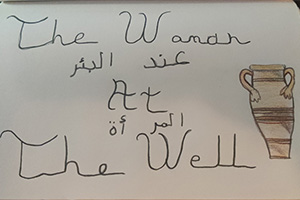 The Woman
عند البئر
At
المر أة
The Well